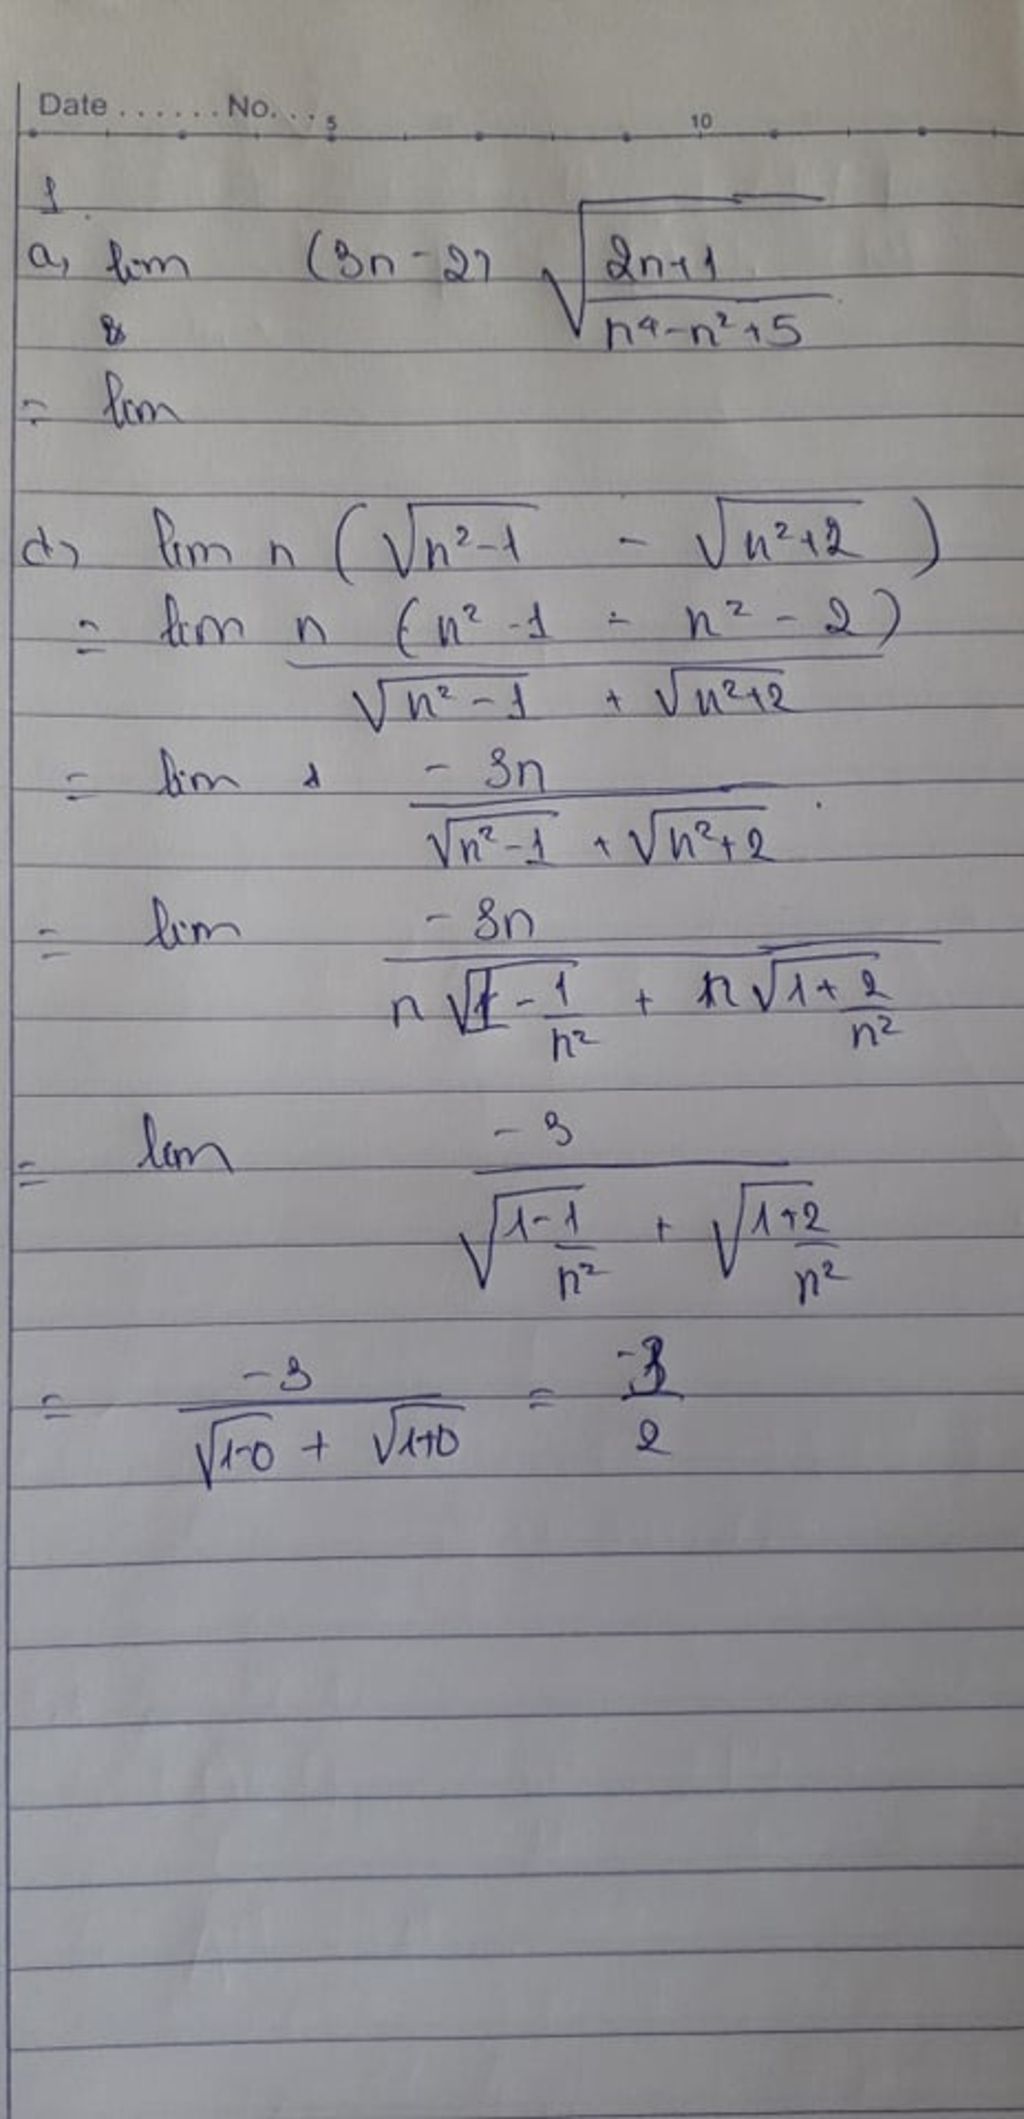 Date ...... No. ... 5 10
1.
a, lim (3n - 2) √((2n+1)/(n⁴-n²+5))
= lim
d, lim n (√(n²-1) - √(n²+2))
= lim n (n²-1 - n² - 2) / (√(n²-1) + √(n²+2))
= lim -3n / (√(n²-1) + √(n²+2))
= lim -3n / (n√(1 - 1/n²) + n√(1 + 2/n²))
= lim -3 / (√(1 - 1/n²) + √(1 + 2/n²))
= -3 / (√(1-0) + √(1+0)) = -3/2